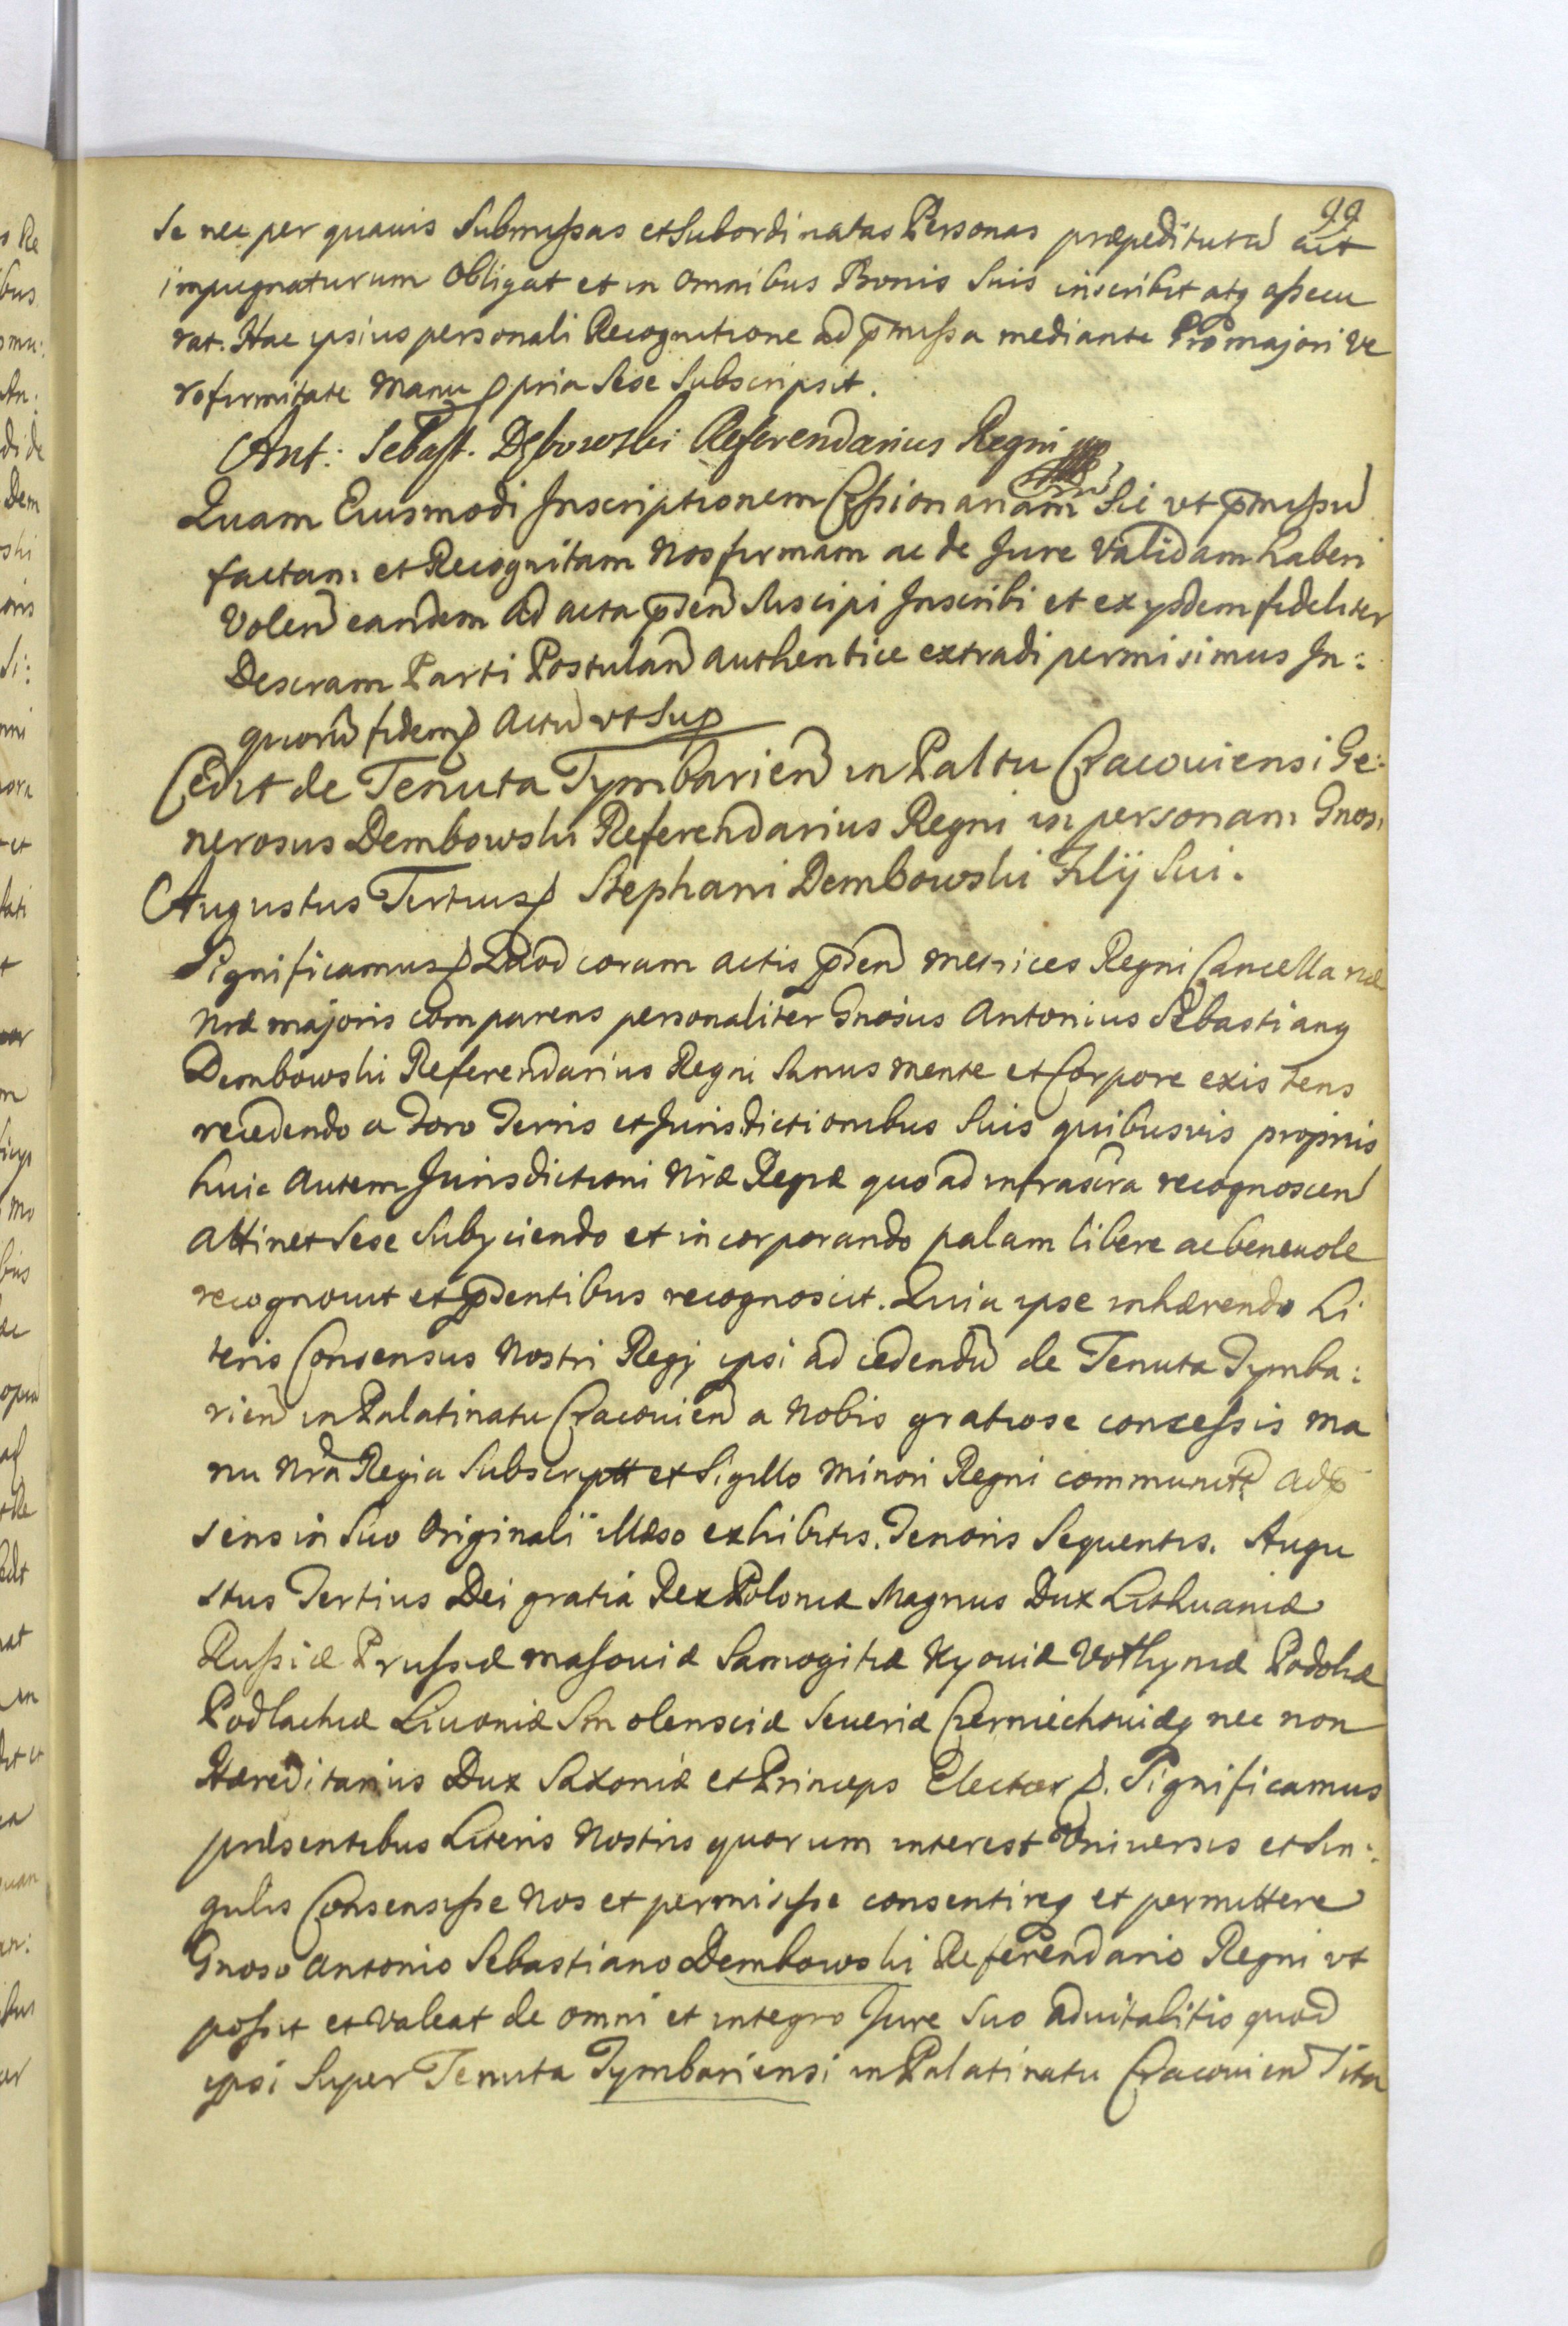 99
se nec per quauis Submissas et Subordinatas Personas præpediturū aut
impugnaturum Obligat et in Omnibus Bonis Suis inscribit atq assecu
rat. Hac ipsius personali Recognitione ad p̄missa mediante Pro majori ve
ro firmitate Manu ppria Sese Subscripsit.
Ant: Sebast. Dębowski Referendarius Regni mpp
Quam Eiusmodi Inscriptionem Cessionariam Sic vt p̄missū
factam et Recognitam Nos firmam ac de Jure Validam haberi
Volen̄ eandem ad acta p̄sen̄ Suscipi Inscribi et ex ysdem fideliter
Descram Parti Postulan̄ authentice extradi permisimus In:
quorū fidem p Actū vt Sup
Cedit de Tenuta Tymbarien̄ in Paltu Cracouiensi Ge:
nerosus Dembowski Referendarius Regni in personam Gnosi
Augustus Tertius p Stephani Dembowski Filij Sui.
Significamus p Quod coram actis p̄sen̄ metrices Regni Cancellariæ
Nræ majoris comparens personaliter Gnosus Antonius Sebastianq
Dembowski Referendarius Regni Sanus mente et Corpore existens
recedendo a Foro Terris et Jurisdictionibus Suis quibusvis proprijs
huic autem Jurisdictioni Nræ Regiæ quo ad infrascra recognoscen̄
attinet Sese Subyciendo et incorporando palam libere ac beneuole
recognouit et p̄sentibus recognoscit. Quia ipse inhærendo Li
teris Consensus Nostri Regij ipsi ad cedendū de Tenuta Tymba:
rien̄ in Palatinatu Cracouien̄ a Nobis gratiose concessis ma
nu Nra Regia Subscriptt et Sigillo Minori Regni communitt ad p̄
sens in Suo Originali illæso exhibitis. Tenoris Sequentis. Augu
stus Tertius Dei gratia Rex Poloniæ Magnus Dux Lithuaniæ
Russiæ Prussiæ masouiæ Samogitiæ Kyouiæ Volhyniæ Podoliæ
Podlachiæ Liuoniæ Smolensciæ Seueriæ Czerniechouiæq nec non
Hæreditarius Dux Saxoniæ et Princeps Elector p. Significamus
præsentibus Literis Nostris quorum interest Vniuersis et Sin:
gulis Consensisse Nos et permisisse consentireq et permittere
Gnoso Antonio Sebastiano Dembowski Referendario Regni vt
possit et valeat de omni et integro Jure Suo aduitalitio quod
ypsi Super Tenuta Tymbariensi in Palatinatu Cracouien̄ Sita